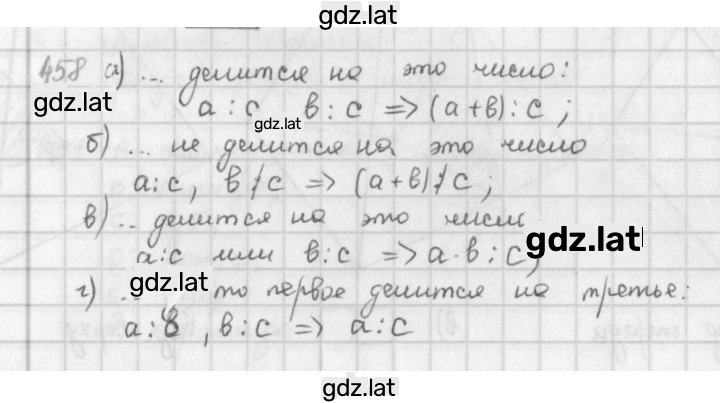 gdz.lat
458 а) ... делится на это число:
gdz.lat
а : с в : с => (а+в) : с ;
gdz.lat
б) ... не делится на это число
а : с, в ⁒ с => (а+в) ⁒ с ;
в) .. делится на это число
gdz.lat
а : с или в : с => а · в : с ;
gdz.lat
г) ... то первое делится на третье:
а : в , в : с => а : с
gdz.lat